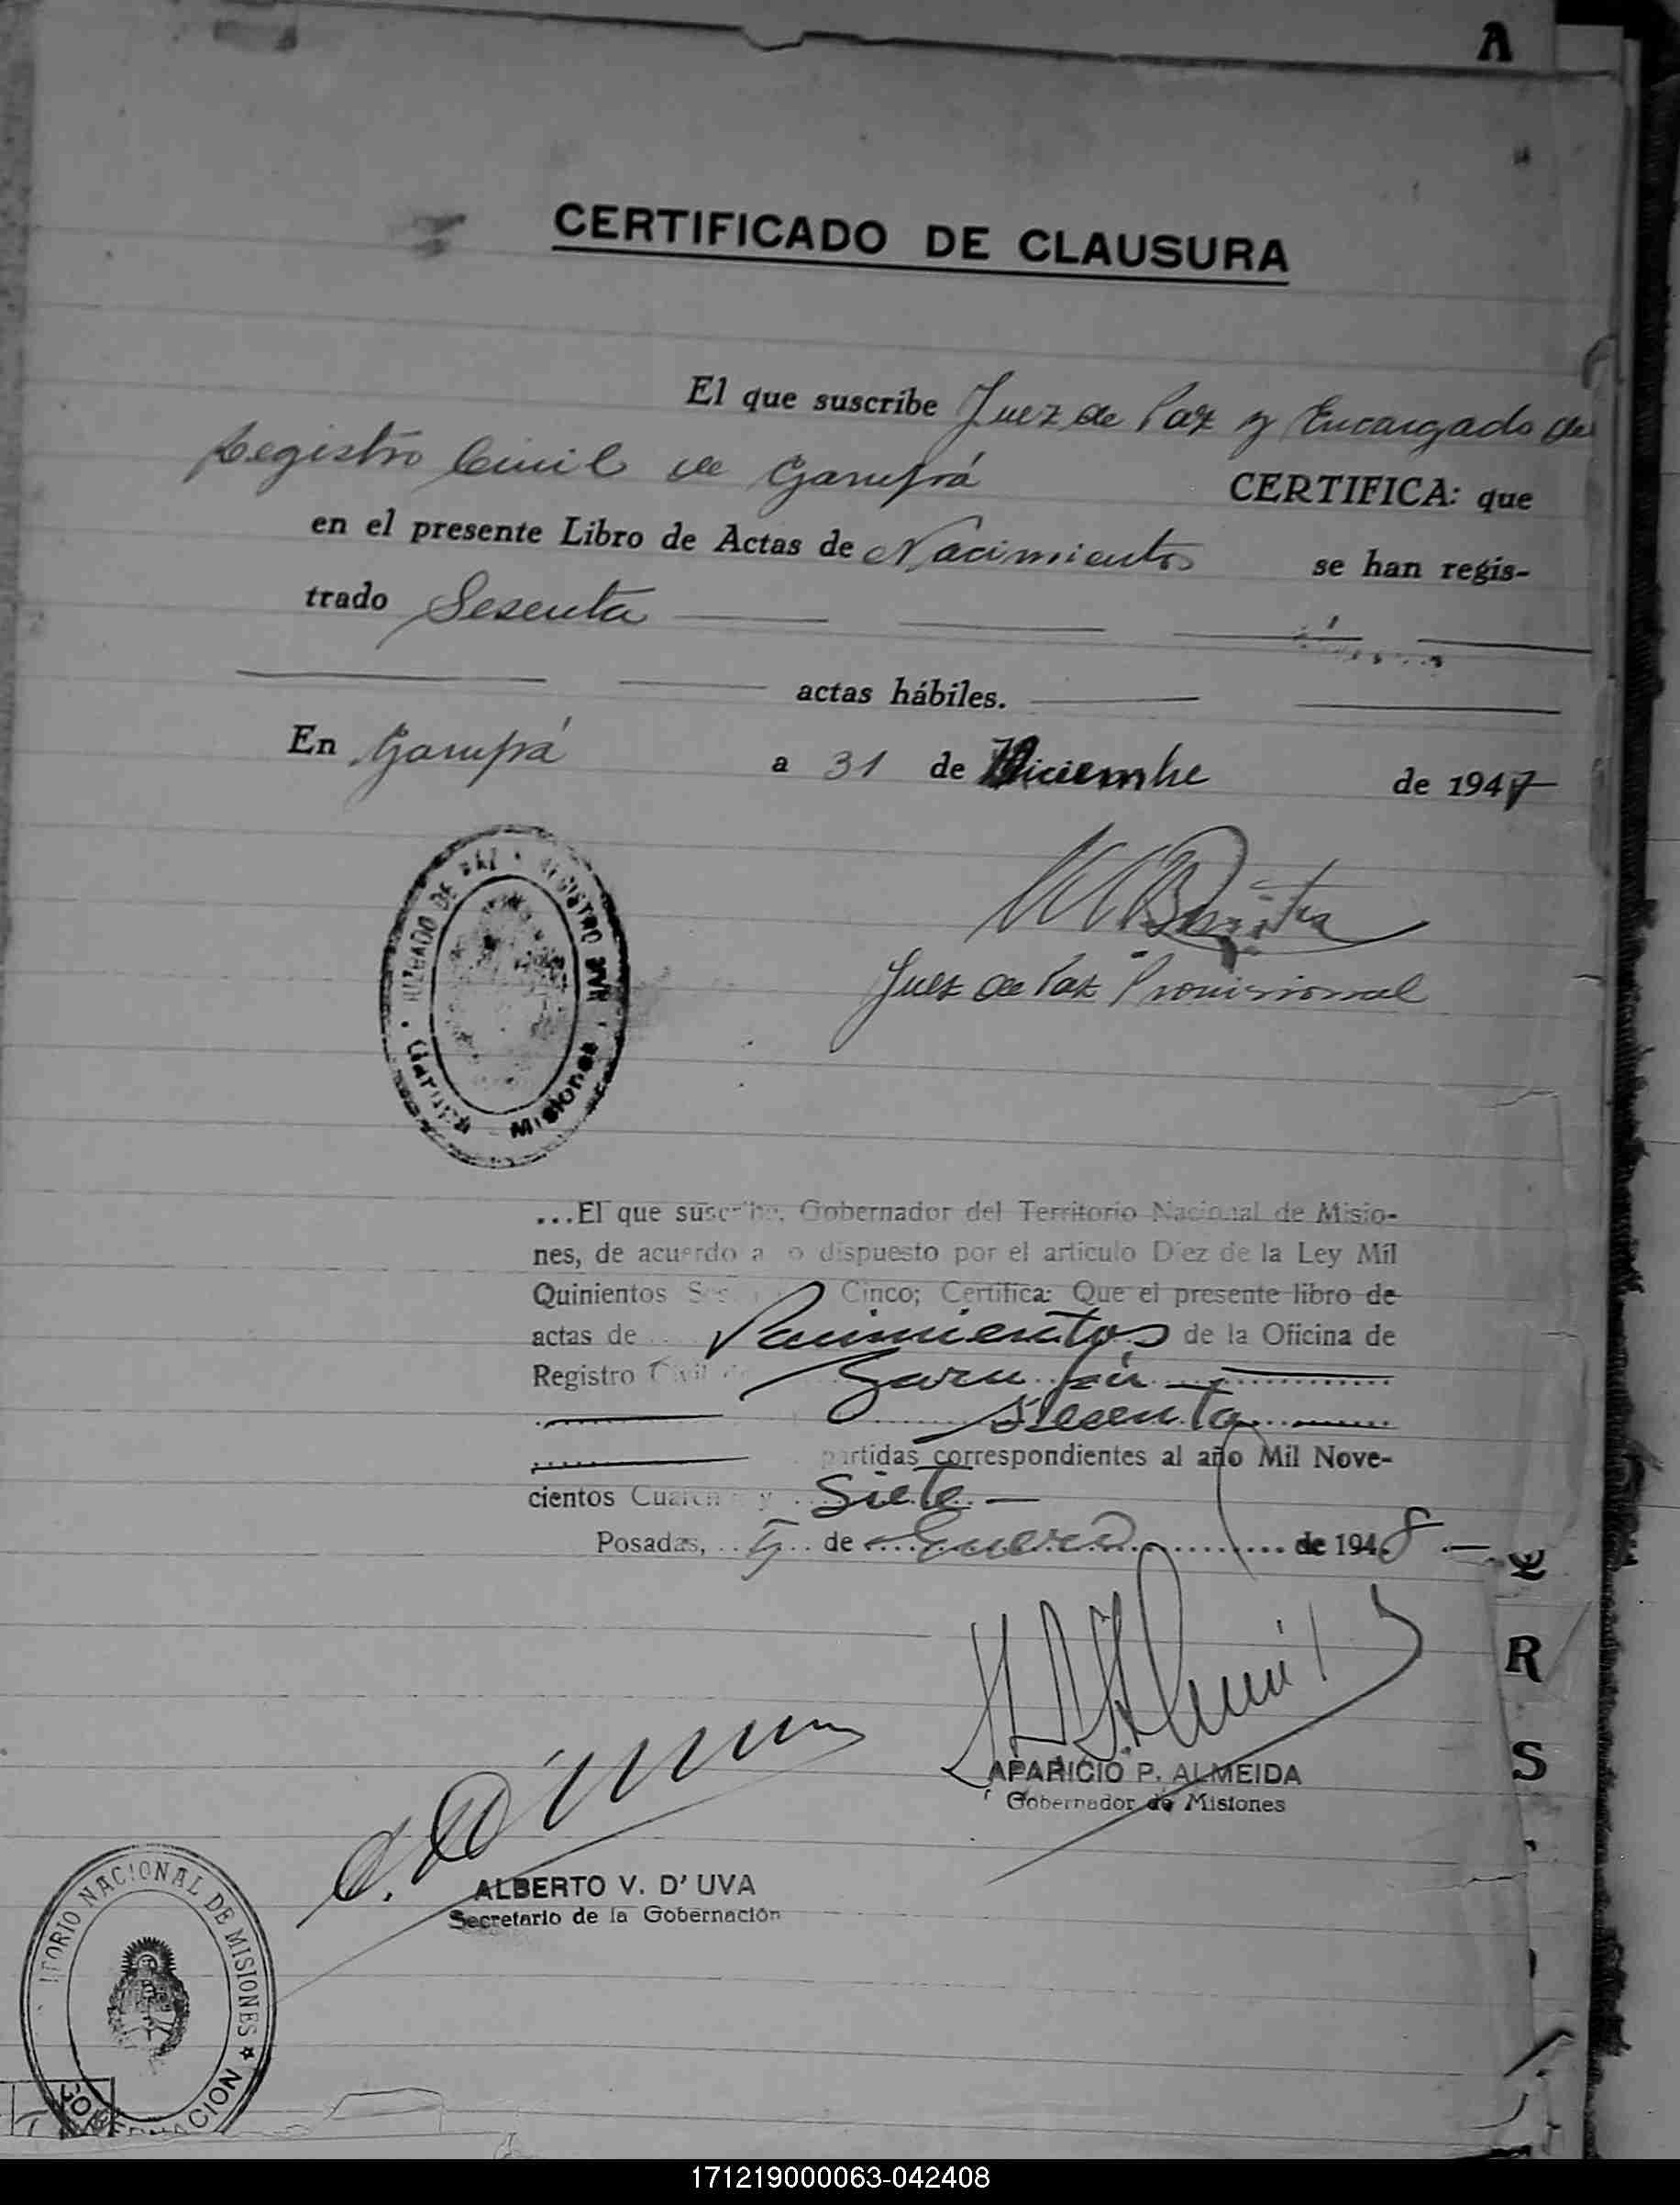 A
CERTIFICADO DE CLAUSURA
El que suscribe Juez de Paz y Encargado del
Registro Civil de Garupá CERTIFICA: que
en el presente Libro de Actas de Nacimientos se han regis-
trado Sesenta
actas hábiles.
En Garupá a 31 de Diciembre de 1947
Juez de Paz Provisional
JUZGADO DE PAZ · REGISTRO CIVIL · Garupá Misiones
...El que suscribe, Gobernador del Territorio Nacional de Misio-
nes, de acuerdo a lo dispuesto por el artículo Diez de la Ley Mil
Quinientos Sesenta y Cinco; Certifica: Que el presente libro de
actas de Nacimientos de la Oficina de
Registro Civil de Garupá
Sesenta
partidas correspondientes al año Mil Nove-
cientos Cuarenta y Siete
Posadas, 5 de Enero de 1948
Q
R
S
APARICIO P. ALMEIDA
Gobernador de Misiones
ALBERTO V. D'UVA
Secretario de la Gobernación
ITORIO NACIONAL DE MISIONES ★ GOBERNACION
171219000063-042408